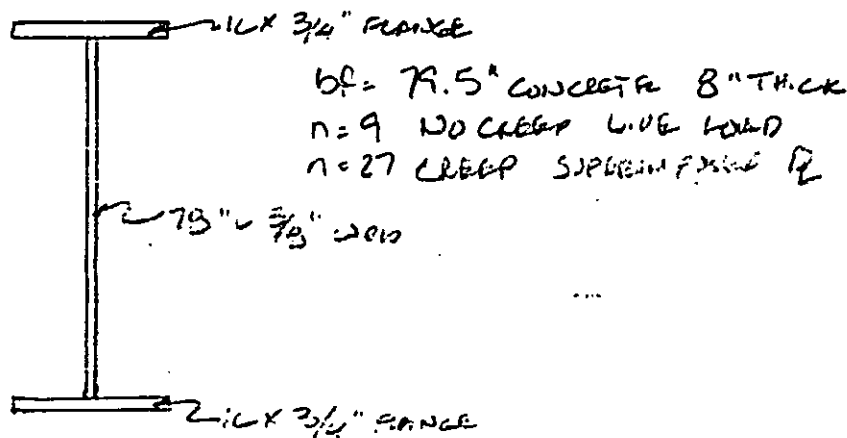 16 X 3/4" FLANGE
bf = 79.5" CONCRETE 8" THICK
n = 9 NO CREEP LIVE LOAD
n = 27 CREEP SUPERIMPOSED DL
78" x 3/8" WEB
16 X 3/4" FLANGE